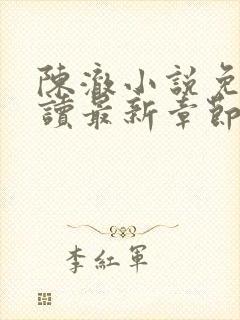 陳澈小說免
讀最新章節
李紅軍